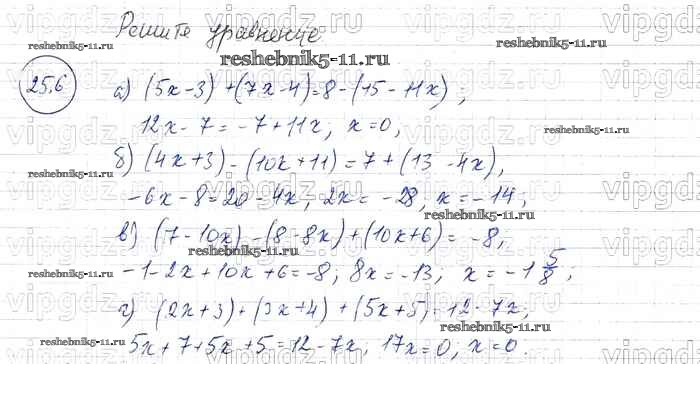 Решите уравнение
25.6
а) (5x-3)+(7x-4)=8-(15-11x);
12x-7=-7+11x; x=0,
б) (4x+3)-(10x+11)=7+(13-4x),
-6x-8=20-4x; 2x=-28, x=-14;
в) (7-10x)-(8-8x)+(10x+6)=-8,
-1-2x+10x+6=-8; 8x=-13; x=-1 5/8;
г) (2x+3)+(3x+4)+(5x+5)=12-7x;
5x+7+5x+5=12-7x, 17x=0, x=0.
reshebnik5-11.ru
vipgdz.ru